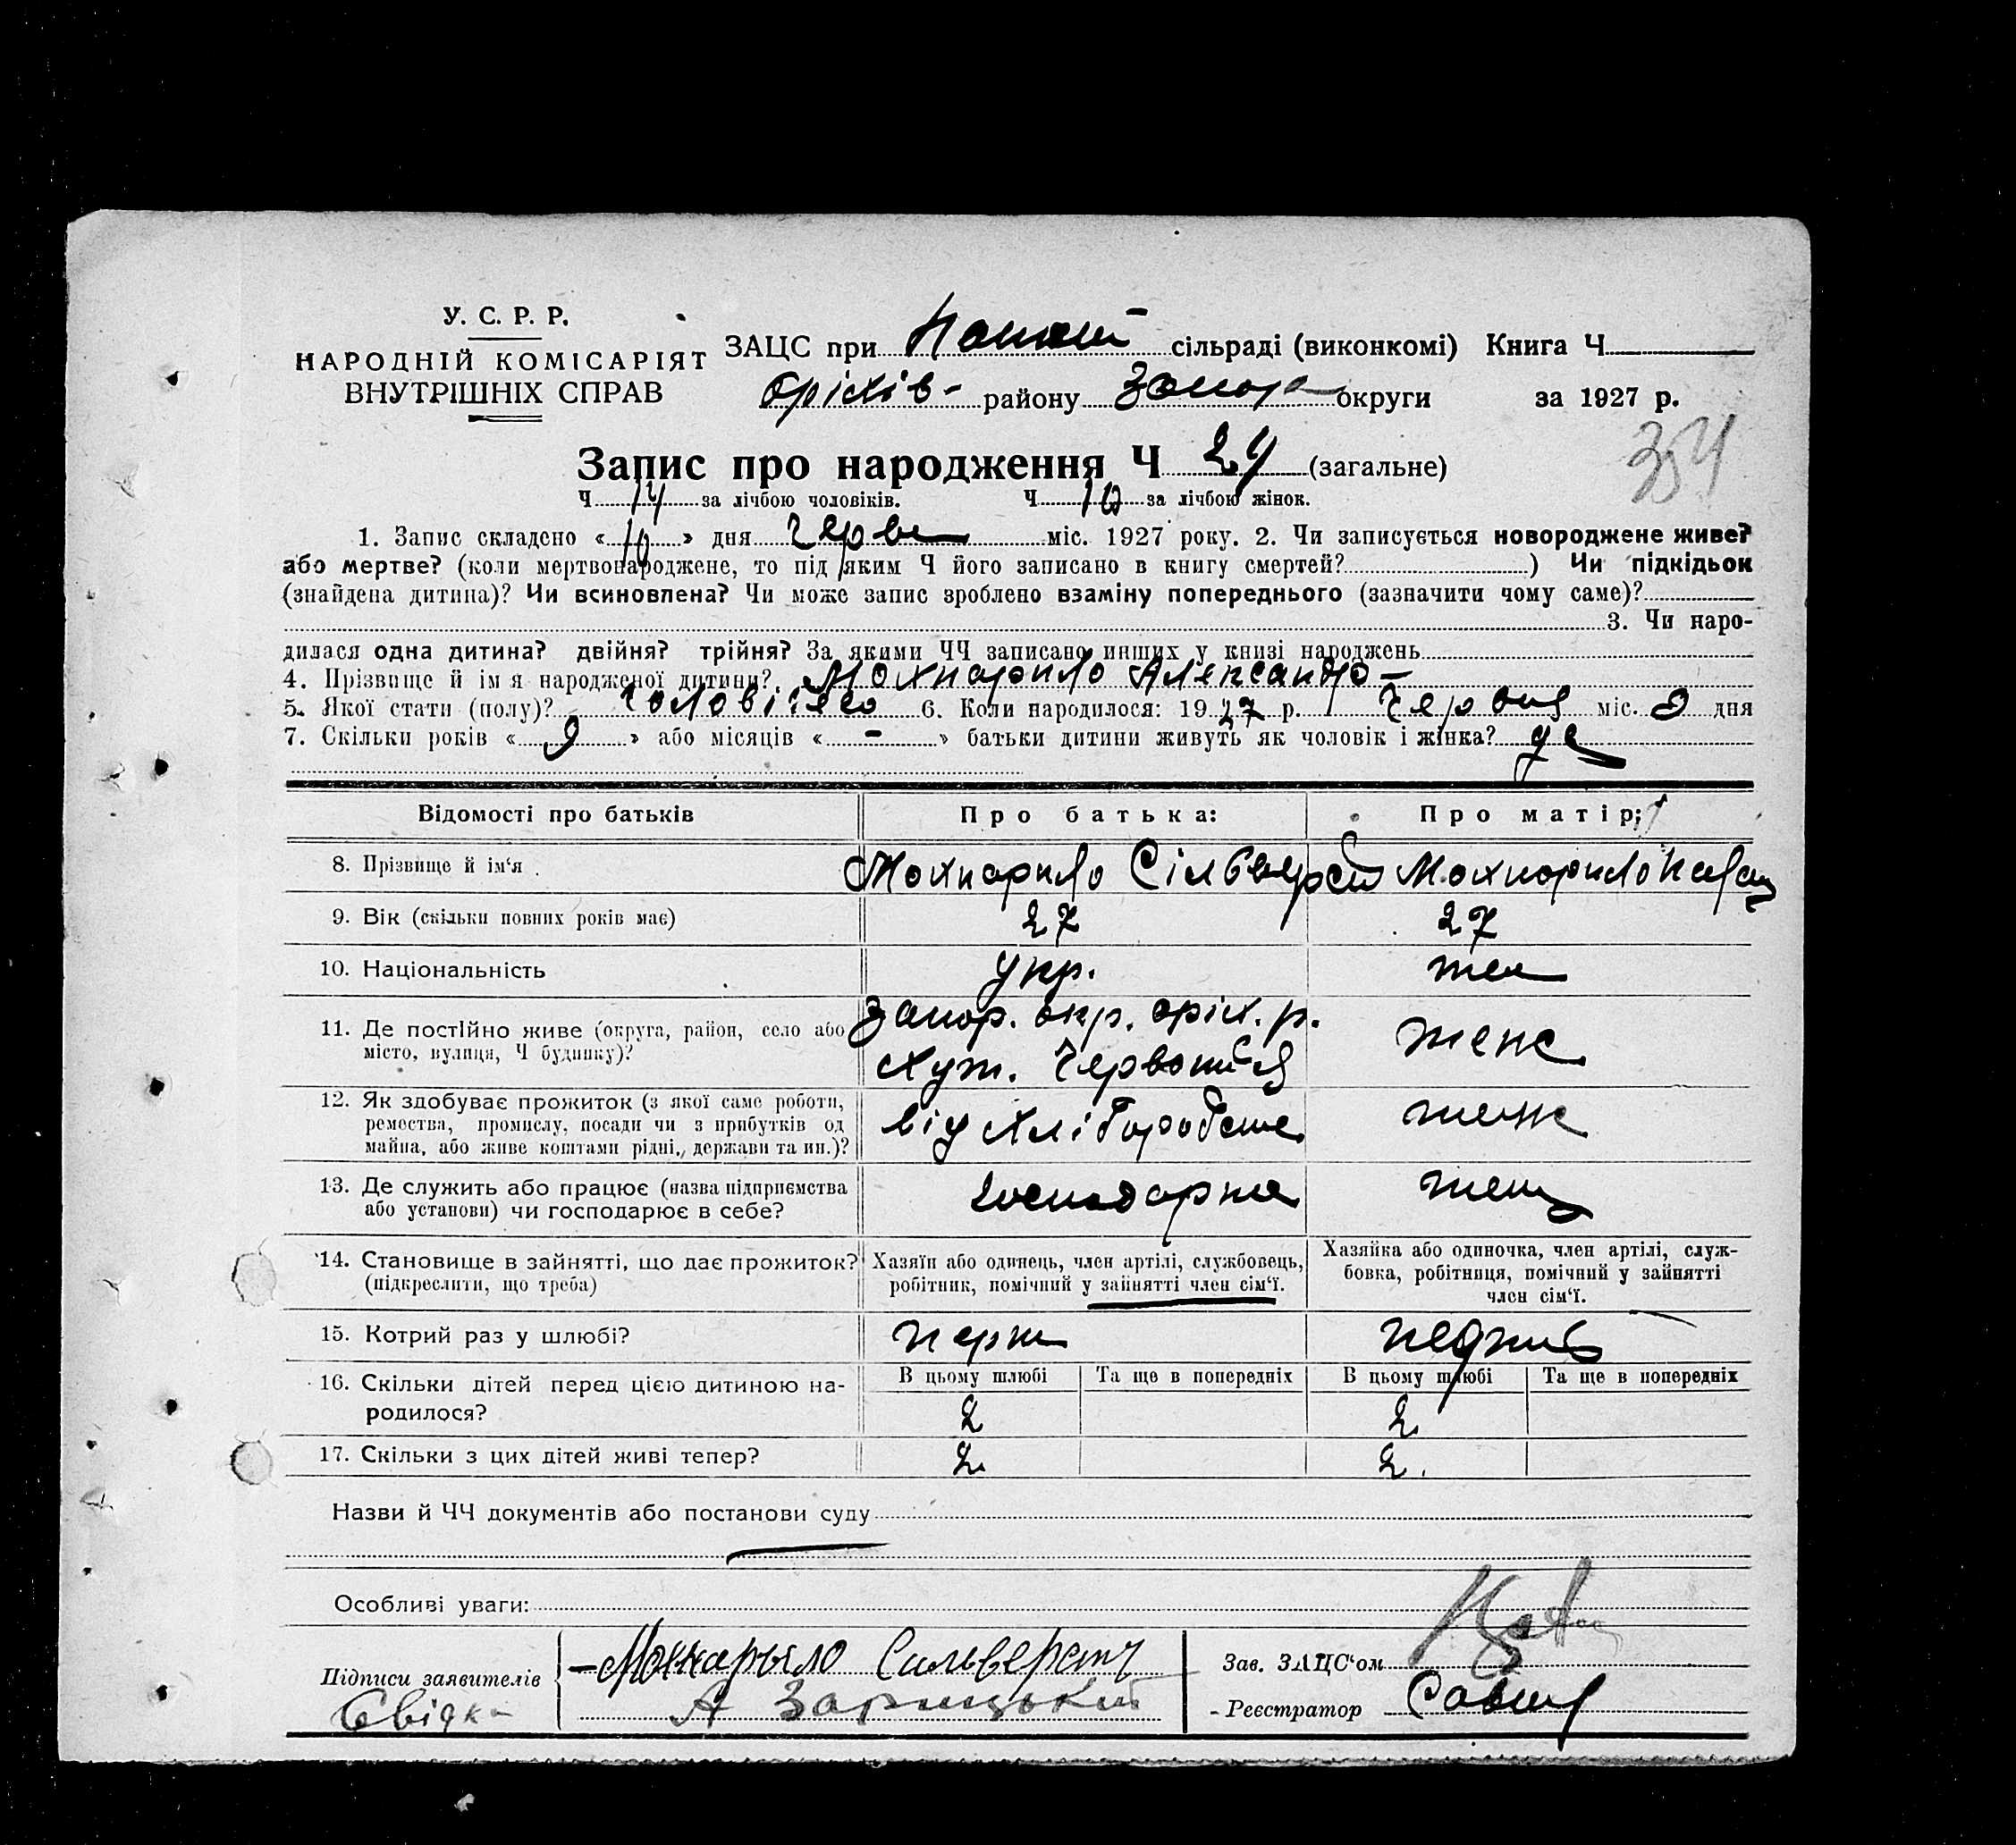 У. С. Р. Р.
НАРОДНІЙ КОМІСАРІЯТ
ВНУТРІШНІХ СПРАВ
ЗАЦС при сільраді (виконкомі) Книга Ч
Оріхів- району Запор округи за 1927 р.
354
Запис про народження Ч 24 (загальне)
Ч 14 за лічбою чоловіків. Ч 10 за лічбою жінок.
1. Запис складено «10» дня черве міс. 1927 року. 2. Чи записується новороджене живе?
або мертве? (коли мертвонароджене, то під яким Ч його записано в книгу смертей? ) Чи підкідьок
(знайдена дитина)? Чи всиновлена? Чи може запис зроблено взаміну попереднього (зазначити чому саме)?
3. Чи наро-
дилася одна дитина? двійня? трійня? За якими ЧЧ записано инших у книзі народжень
4. Прізвище й ім я народженої дитини? Мохнарило Александр-
5. Якої стати (полу)? 6. Коли народилося: 1927 р. Червня міс. дня
7. Скільки років « 9 » або місяців « - » батьки дитини живуть як чоловік і жінка? де
Відомості про батьків Про батька: Про матір:
8. Прізвище й ім‘я Мохнарило Сільверст Мохнорило
9. Вік (скільки повних років має) 27 27
10. Національність укр.
11. Де постійно живе (округа, район, село або
місто, вулиця, Ч будинку)? Запор. окр. оріх. р.
Хут.
12. Як здобуває прожиток (з якої саме роботи,
ремества, промислу, посади чи з прибутків од
майна, або живе коштами рідні, держави та ин.)? від
13. Де служить або працює (назва підприємства
або установи) чи господарює в себе?
14. Становище в зайнятті, що дає прожиток?
(підкреслити, що треба)
Хазяїн або одинець, член артілі, службовець,
робітник, помічний у зайнятті член сім‘ї.
Хазяйка або одиночка, член артілі, служ-
бовка, робітниця, помічний у зайнятті
член сім‘ї.
15. Котрий раз у шлюбі?
В цьому шлюбі Та ще в попередніх В цьому шлюбі Та ще в попередніх
16. Скільки дітей перед цією дитиною на-
родилося? 2 2
17. Скільки з цих дітей живі тепер? 2 2.
Назви й ЧЧ документів або постанови суду
Особливі уваги:
Підписи заявителів Мохнарыло Сильверст
Свідки А Зарицький
Зав. ЗАЦС‘ом
Реєстратор